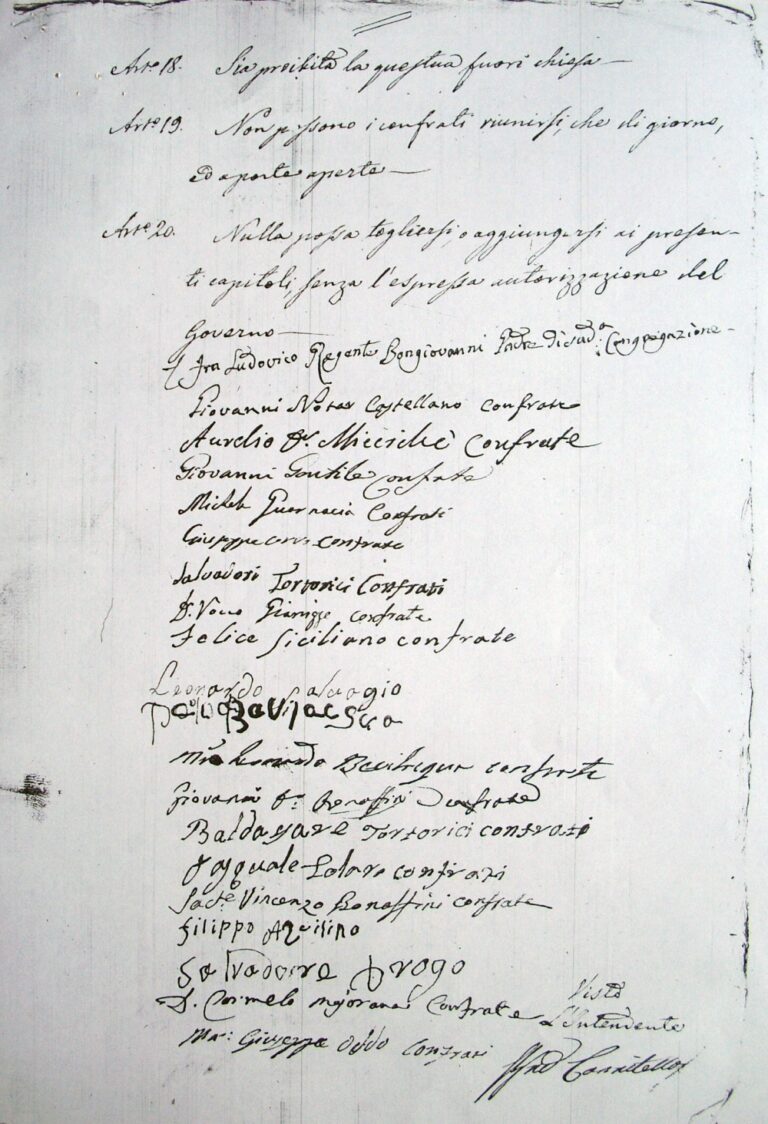 Art.º 18. Sia proibita la questua fuori chiesa —
Art.º 19. Non possono i confrati riunirsi, che di giorno,
ed a porte aperte —
Art.º 20. Nulla possa togliersi, o aggiungersi ai presen-
ti capitoli, senza l'espressa autorizzazione del
Governo —
Fra Ludovico Regente Bongiovanni di Congregazione -
Giovanni Notar Castellano confrate
Aurelio Dr. Miccichè Confrate
Giovanni Gentile Confrate
Michele Guernacia Confrati
Giuseppe confrate
Salvadori Tortorici Confrati
D. confrate
Felice Siciliano confrate
Leonardo Salvagio
Bavilacqua
Leonardo Bevilaqua confrati
Giovanni Dr. Bonaffini Confrate
Baldasare Tortorici confrati
Pasquale confrati
Sacte. Vincenzo Bonaffini confrate
Filippo Aquilino
Salvadore Drogo
D. Carmelo Majorana Confrate
Visto
L'Intendente
Mro: Giuseppe Oddo Confrati